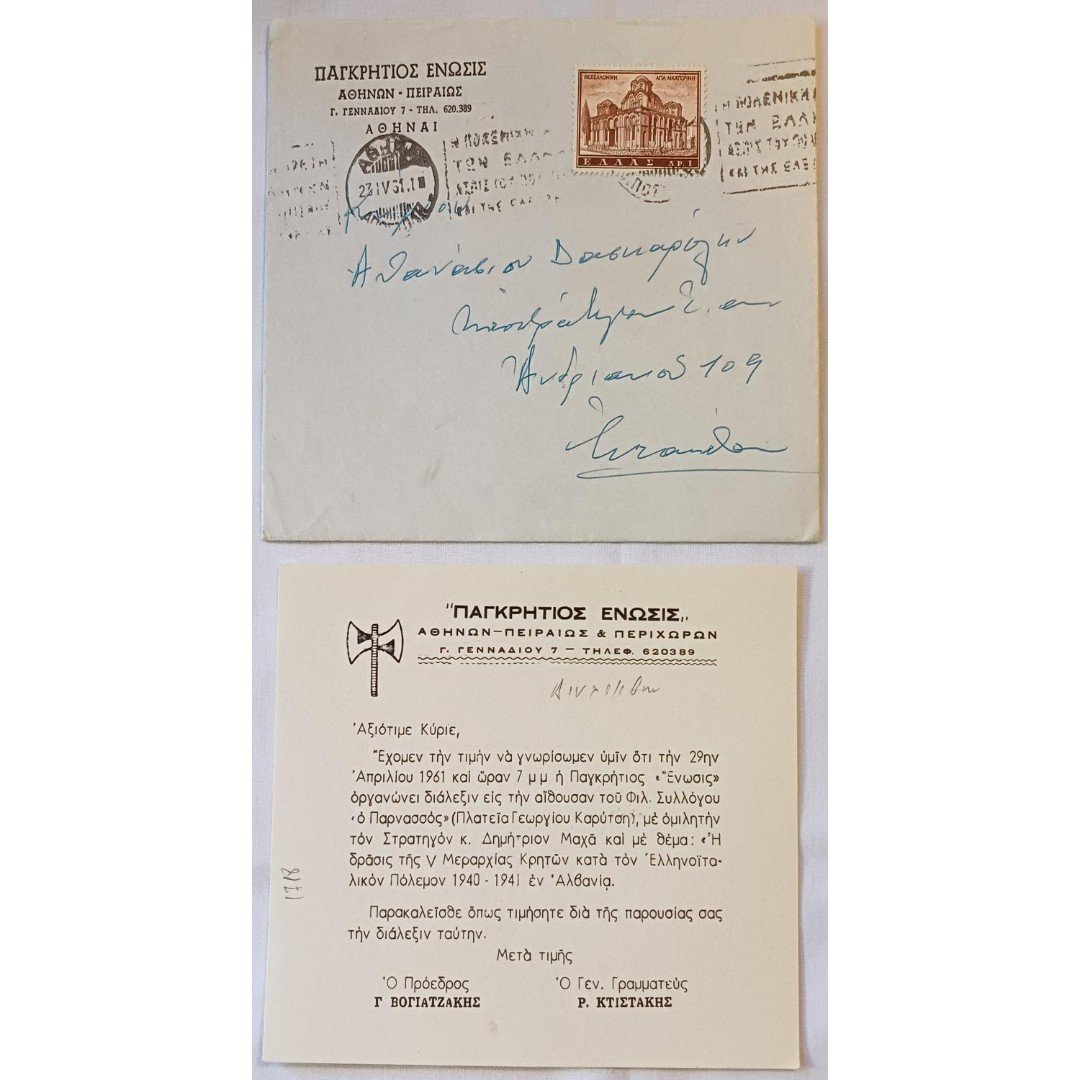 ΠΑΓΚΡΗΤΙΟΣ ΕΝΩΣΙΣ
ΑΘΗΝΩΝ - ΠΕΙΡΑΙΩΣ
Γ. ΓΕΝΝΑΔΙΟΥ 7 - ΤΗΛ. 620.389
ΑΘΗΝΑΙ
ΘΕΣΣΑΛΟΝΙΚΗ ΑΓΙΑ ΑΙΚΑΤΕΡΙΝΗ
ΕΛΛΑΣ ΔΡ. 1
23 IV 61
ΤΩΝ ΕΛΛ
Αθανάσιον
109
"ΠΑΓΚΡΗΤΙΟΣ ΕΝΩΣΙΣ,,
ΑΘΗΝΩΝ—ΠΕΙΡΑΙΩΣ & ΠΕΡΙΧΩΡΩΝ
Γ. ΓΕΝΝΑΔΙΟΥ 7 — ΤΗΛΕΦ. 620389
Ἀξιότιμε Κύριε,
Ἔχομεν τὴν τιμὴν νὰ γνωρίσωμεν ὑμῖν ὅτι τὴν 29ην
Ἀπριλίου 1961 καὶ ὥραν 7 μ μ ἡ Παγκρήτιος «Ἕνωσις»
ὀργανώνει διάλεξιν εἰς τὴν αἴθουσαν τοῦ Φιλ. Συλλόγου
«ὁ Παρνασσός» (Πλατεῖα Γεωργίου Καρύτση), μὲ ὁμιλητὴν
τὸν Στρατηγόν κ. Δημήτριον Μαχᾶ καὶ μὲ θέμα: «Ἡ
δρᾶσις τῆς V Μεραρχίας Κρητῶν κατὰ τὸν Ἑλληνοϊτα-
λικὸν Πόλεμον 1940 - 1941 ἐν Ἀλβανίᾳ.
Παρακαλεῖσθε ὅπως τιμήσητε διὰ τῆς παρουσίας σας
τὴν διάλεξιν ταύτην.
Μετὰ τιμῆς
Ὁ Πρόεδρος Ὁ Γεν. Γραμματεὺς
Γ ΒΟΓΙΑΤΖΑΚΗΣ Ρ. ΚΤΙΣΤΑΚΗΣ
1718